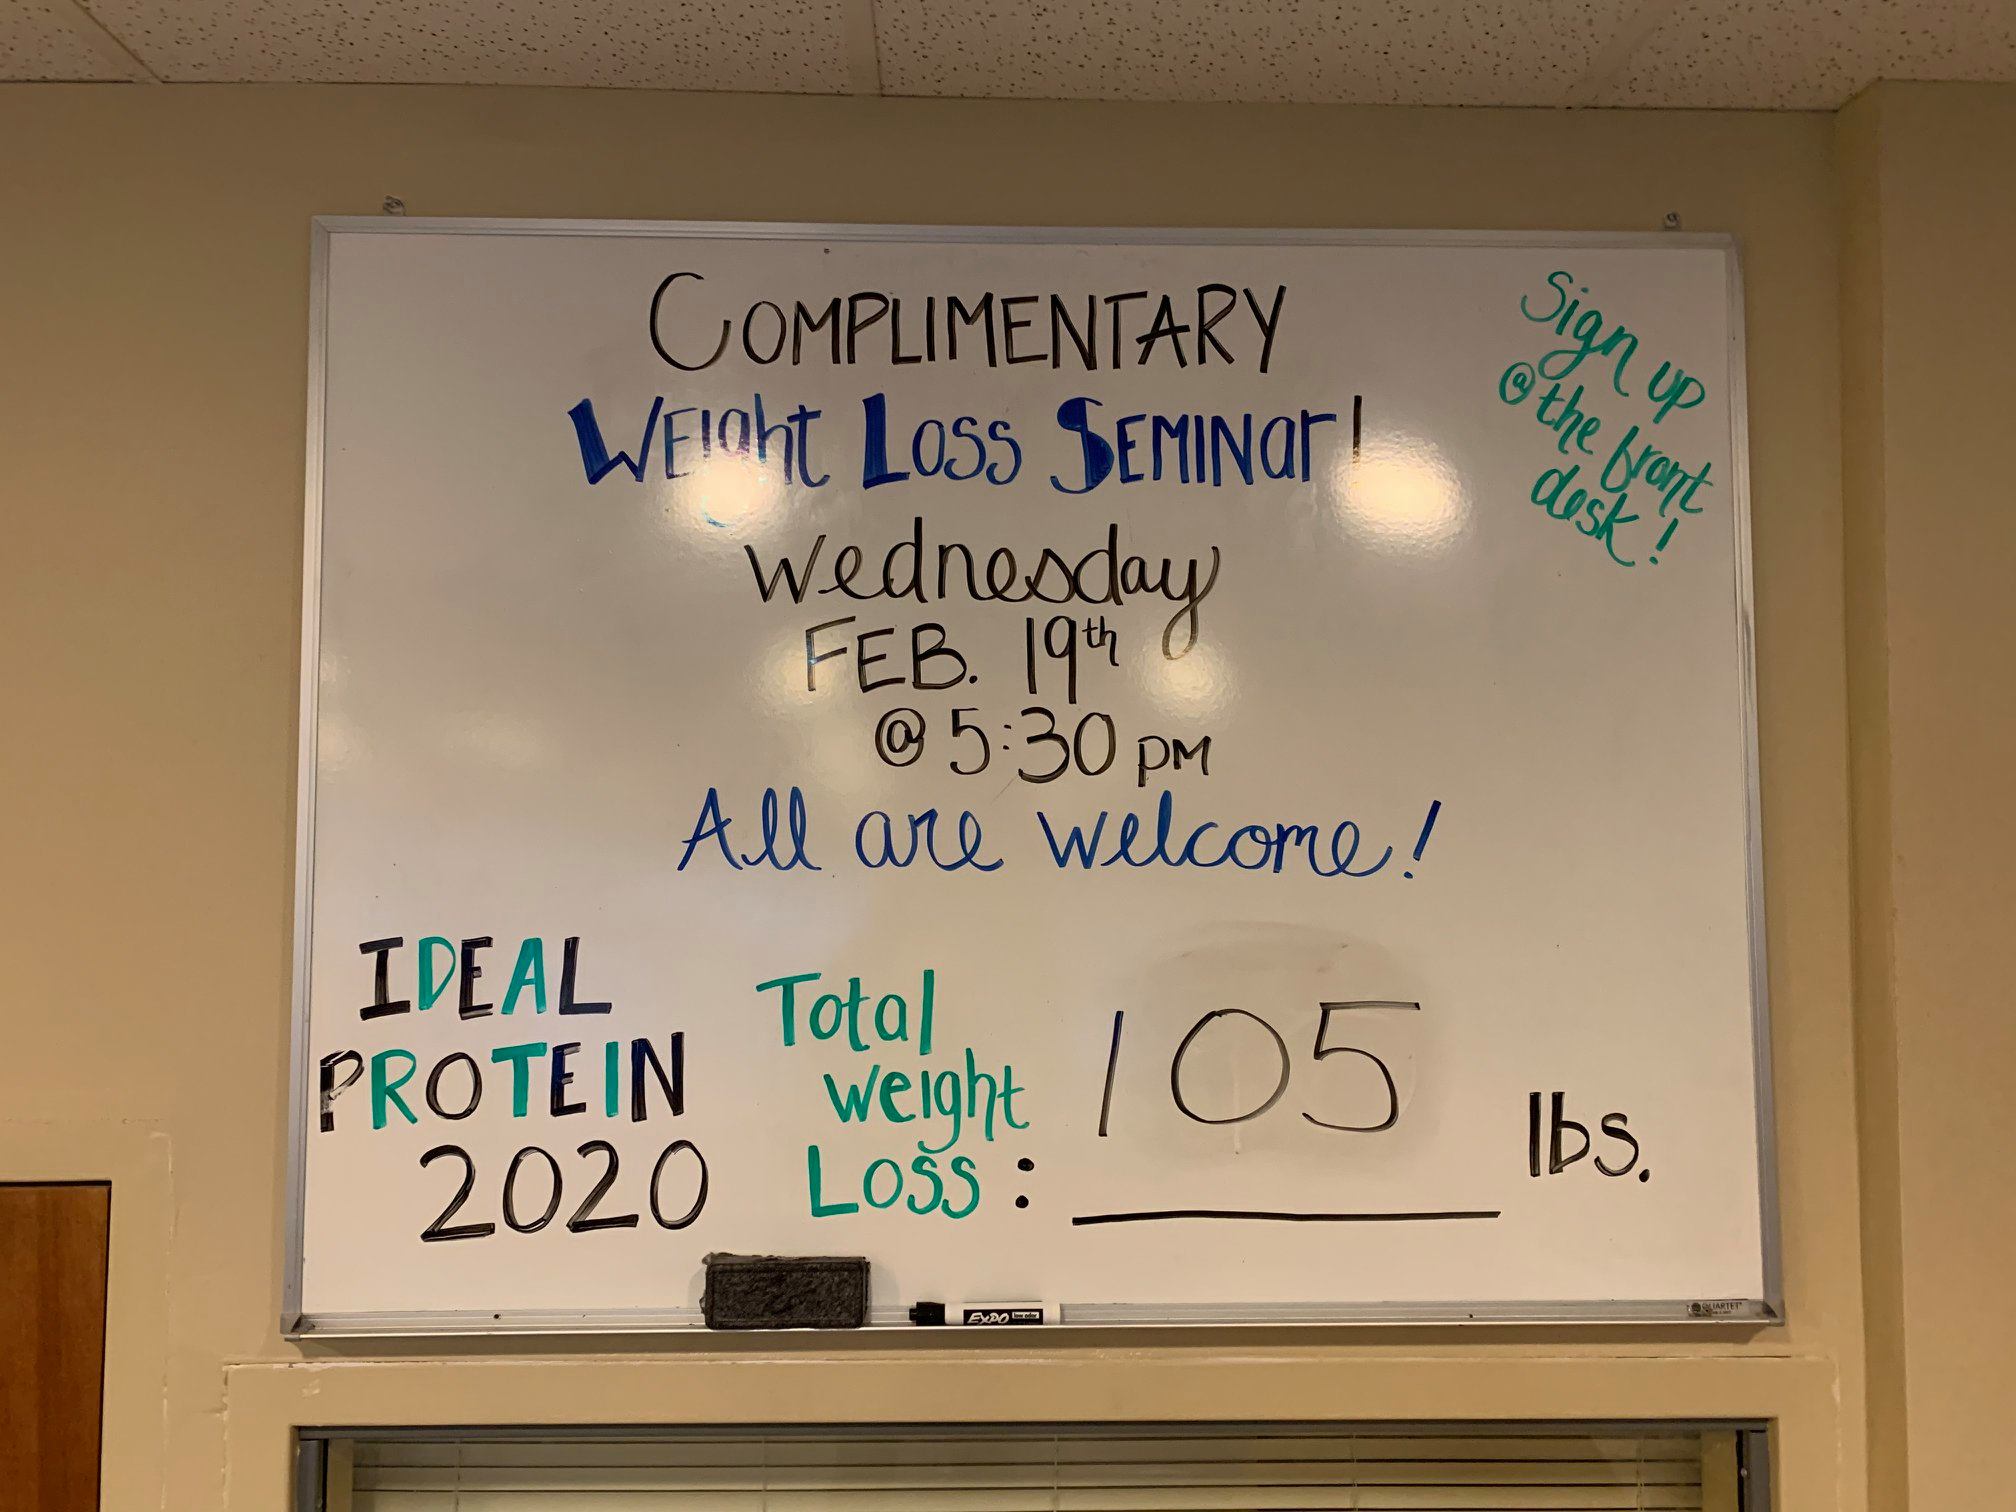 COMPLIMENTARY
WEIght LOSS SEMINar!
Wednesday
FEB. 19th
@ 5:30 PM
All are welcome!
Sign up
@ the front
desk!
IDEAL
PROTEIN
2020
Total
weight
Loss:
105
lbs.
EXPO low odor
QUARTET